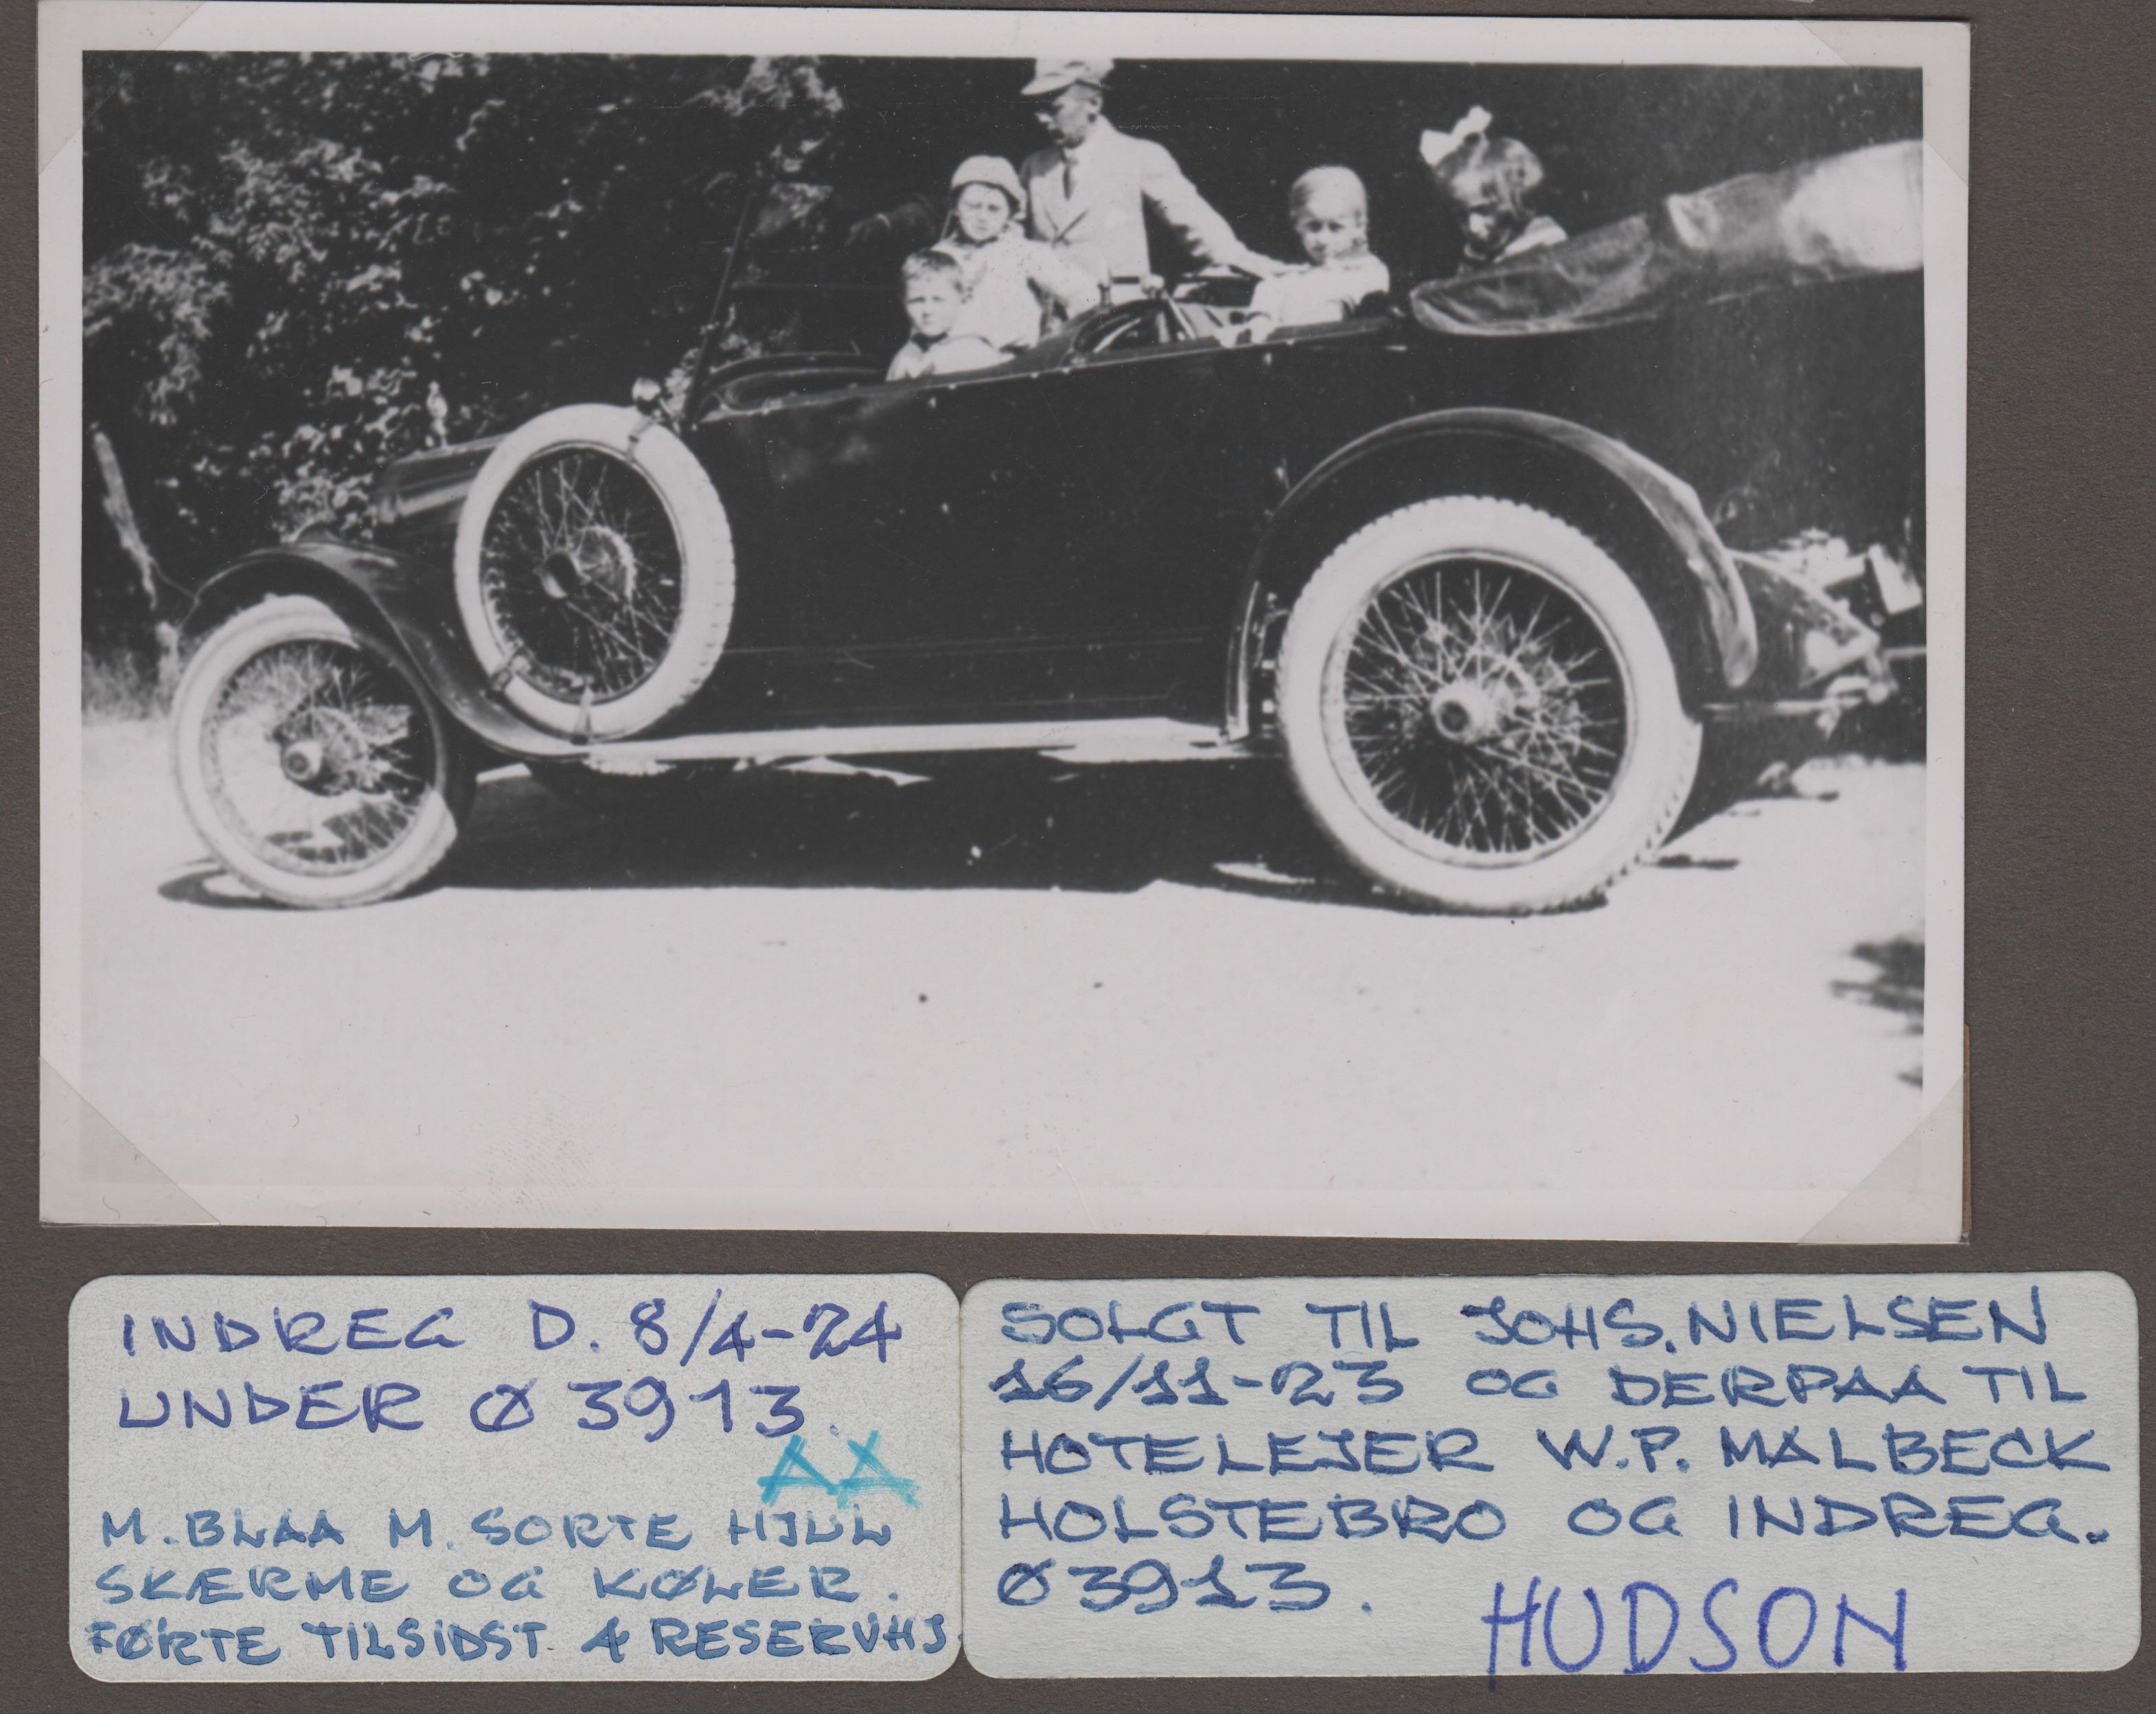 INDREG D. 8/4-24
UNDER Ø 3913.
AA
M. BLAA M. SORTE HJUL
SKÆRME OG KØLER.
FØRTE TILSIDST 4 RESERVHJ.
SOLGT TIL JOHS. NIELSEN
16/11-23 OG DERPAA TIL
HOTELEJER W.P. MALBECK
HOLSTEBRO OG INDREG.
Ø 3913.
HUDSON